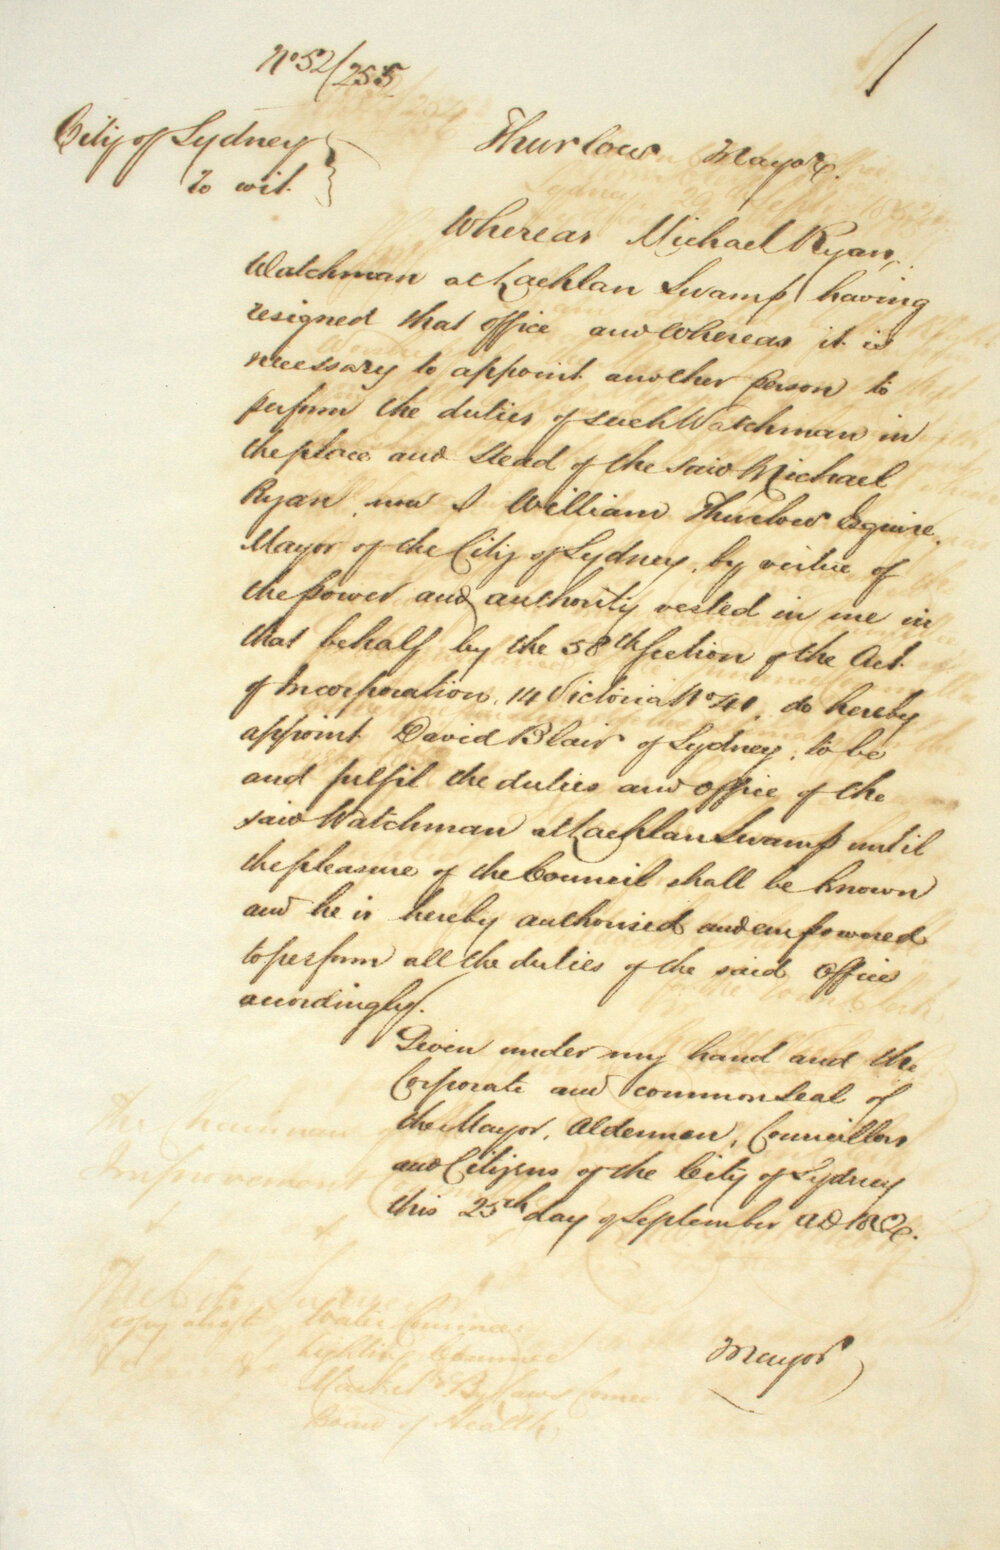 No 52/255
City of Sydney
to wit
Thurlow Mayor.
Whereas Michael Ryan,
Watchman at Lachlan Swamp having
resigned that office and whereas it is
necessary to appoint another person to
perform the duties of such Watchman in
the place and stead of the said Michael
Ryan now I William Thurlow Esquire,
Mayor of the City of Sydney, by virtue of
the power and authority vested in me in
that behalf by the 58th Section of the Act
of Incorporation, 14 Victoria No 41, do hereby
appoint David Blair of Sydney, to be
and fulfil the duties and office of the
said Watchman at Lachlan Swamp until
the pleasure of the Council shall be known
and he is hereby authorised and empowered
to perform all the duties of the said Office
accordingly.
Given under my hand and the
Corporate and common Seal of
the Mayor, Aldermen, Councillors
and Citizens of the City of Sydney
this 25th day of September AD 1852.
Mayor